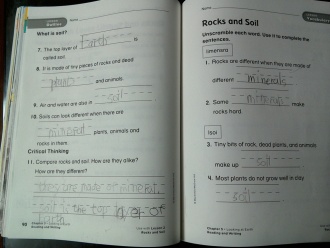 Outline
What is soil?
7. The top layer of Earth is
called soil.
8. It is made of tiny pieces of rocks and dead
plants and animals.
9. Air and water are also in soil
10. Soils can look different when there are
minerals plants, animals and
rocks in them.
Critical Thinking
11. Compare rocks and soil. How are they alike?
How are they different?
these are made of mineral.
soil the top layer of
earth
Rocks and Soil
Unscramble each word. Use it to complete the
sentences.
1. Rocks are different when they are made of
different minerals
2. Some minerals make
rocks hard.
isol
3. Tiny bits of rock, dead plants, and animals
make up soil
4. Most plants do not grow well in clay
soil